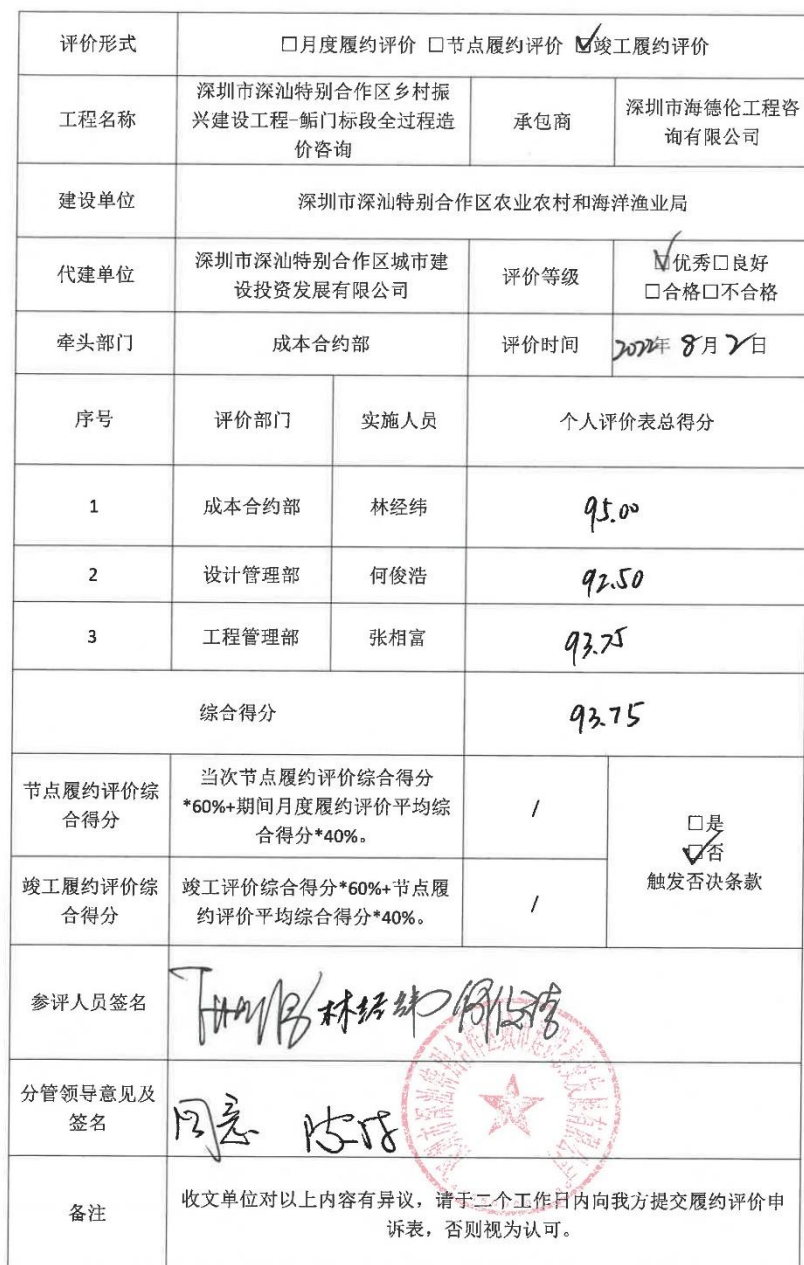 评价形式
□月度履约评价 □节点履约评价 ☑竣工履约评价
工程名称
深圳市深汕特别合作区乡村振
兴建设工程-鲘门标段全过程造
价咨询
承包商
深圳市海德伦工程咨
询有限公司
建设单位
深圳市深汕特别合作区农业农村和海洋渔业局
代建单位
深圳市深汕特别合作区城市建
设投资发展有限公司
评价等级
☑优秀□良好
□合格□不合格
牵头部门
成本合约部
评价时间
2022年 8月 2日
序号
评价部门
实施人员
个人评价表总得分
1
成本合约部
林经纬
95.00
2
设计管理部
何俊浩
92.50
3
工程管理部
张相富
93.75
综合得分
93.75
节点履约评价综
合得分
当次节点履约评价综合得分
*60%+期间月度履约评价平均综
合得分*40%。
/
□是
☑否
触发否决条款
竣工履约评价综
合得分
竣工评价综合得分*60%+节点履
约评价平均综合得分*40%。
/
参评人员签名
林经纬 何俊浩
分管领导意见及
签名
同意
备注
收文单位对以上内容有异议，请于二个工作日内向我方提交履约评价申
诉表，否则视为认可。